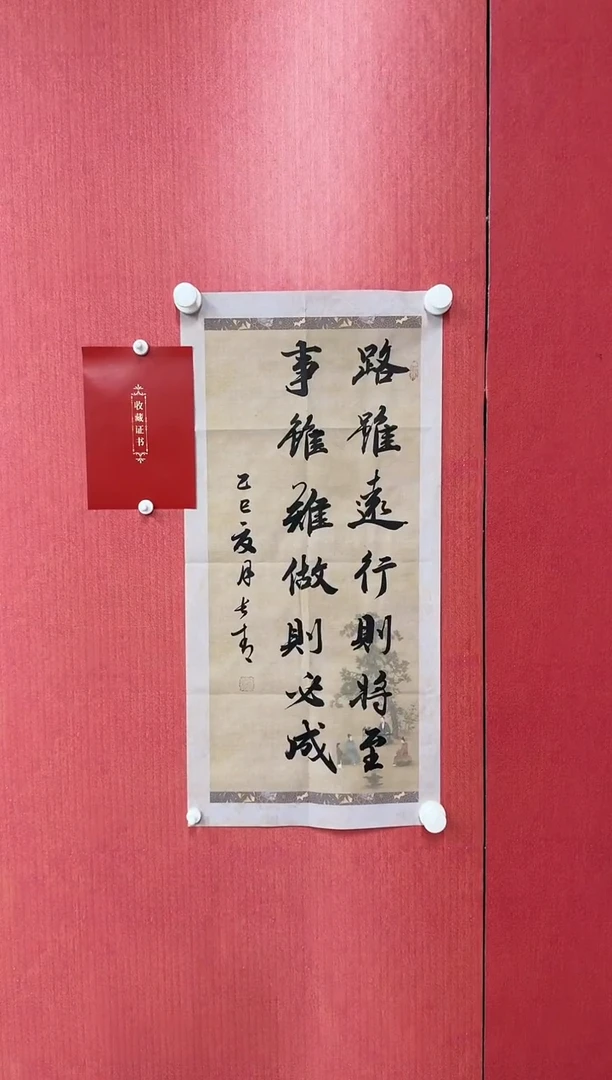 路雖遠行則將至
事雖難做則必成
乙巳夏月長青
收藏证书